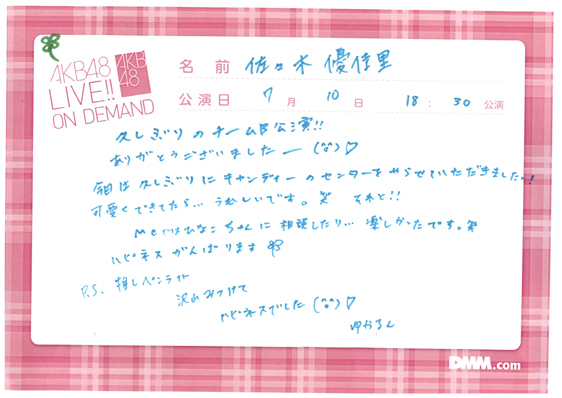 AKB48
LIVE!!
ON DEMAND
AKB
48
名 前 佐々木 優佳里
公演日 7 月 10 日 18 : 30 公演
久しぶりのチームB公演!!
ありがとうございましたー
今日は久しぶりにキャンディーのセンターをやらせていただきました!
可愛くできてたら… うれしいです。笑 それと!!
MCではひなこちゃんに相談したり… 楽しかったです。笑
ハピネス がんばります
P.S. 推しペンライト
沢山みつけて
ハピネスでした
ゆかるん
DMM.com